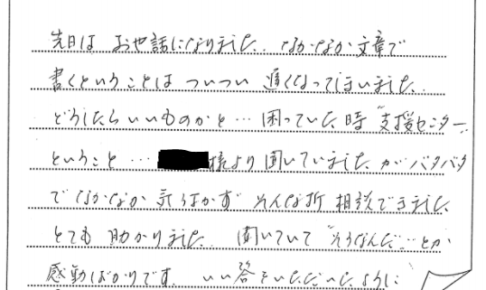 先日は お世話になりました。なかなか文章で
書くということは ついつい 遅くなってしまいました。
どうしたらいいものかと… 困っていた時 "支援センター"
ということ… 様より聞いていましたが バタバタ
で なかなか 気づかず そんな折 相談できました
とても 助かりました。 聞いていて "そうなんだ…"とか
感動ばかりです。 いい答をいただいたように